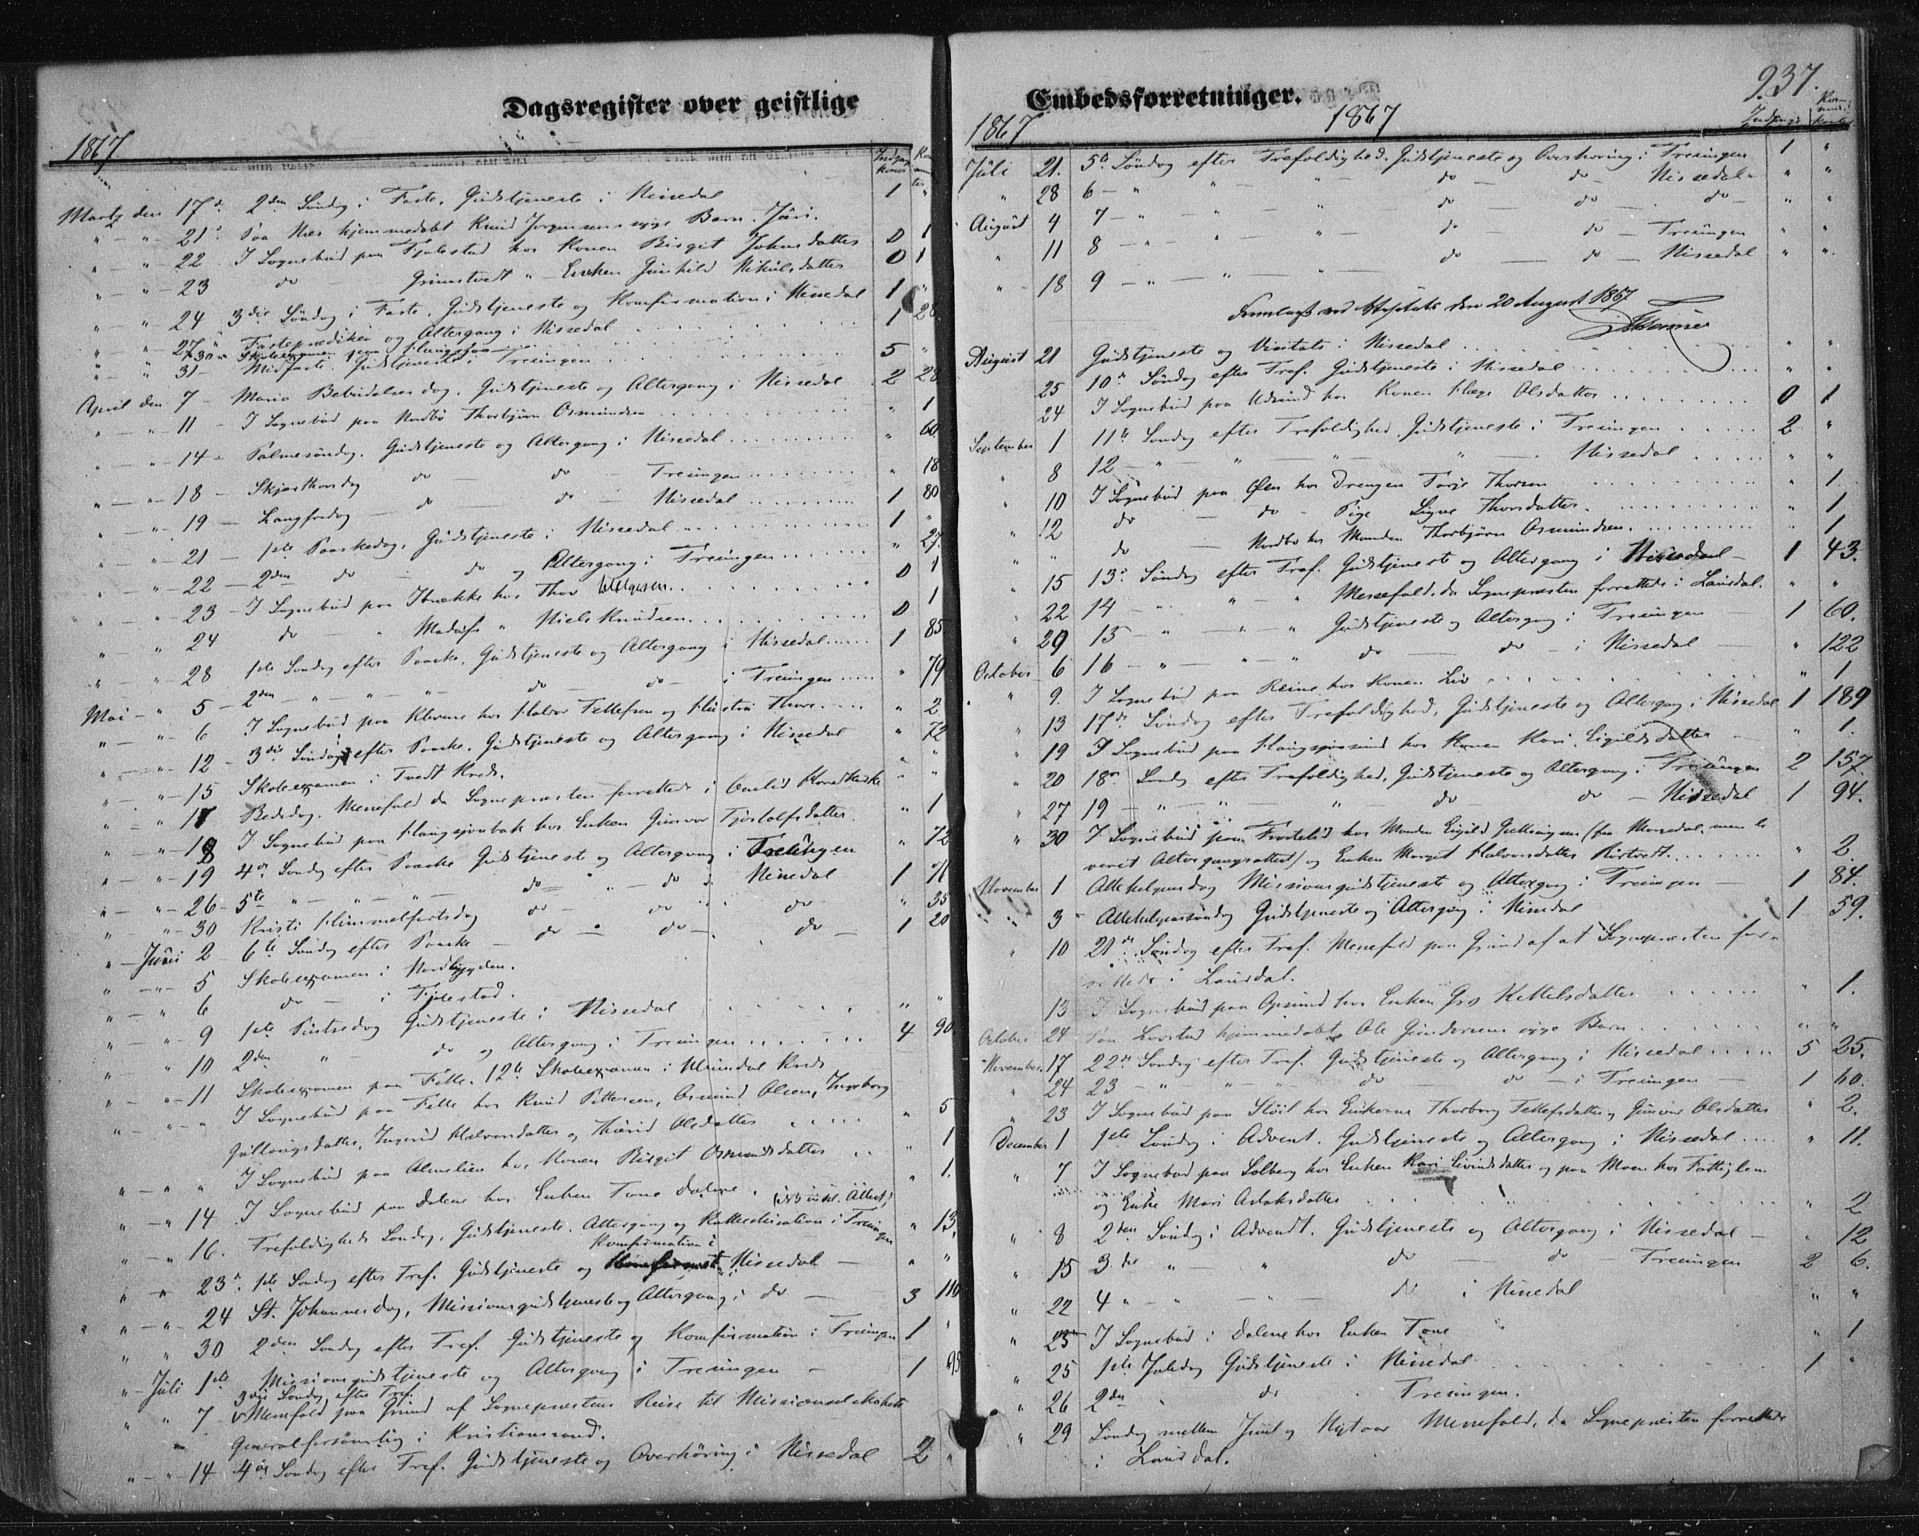 Dagsregister over geistlige
1867.
Indgangskoner Kommunikanter
Martz den 17de 2den Søndag i Faste, Gudstjeneste i Nissedal 1 "
" " 21de Paa Næs hjemmedøbt Knud Jørgensens syge Barn Juri.
" " 22 I Sognebud paa Fjalestad hos Konen Birgit Johnsdatter 0 1
" " 23 do Grimstvedt " Enken Gunhild Nikulsdatter 0 1
" " 24 3die Søndag i Faste, Gudstjeneste og Konfirmation i Nissedal 1 "
" " 27 Fasteprædiken og Altergang i Nissedal 1 28
" " 30 Skoleexamen
" " 31 Midfaste. Gudstjeneste i Treungen 5 "
April den 7 Maria Bebudelsesdag, Gudstjeneste og Altergang i Nissedal 2 28
" " 11 I Sognebud paa Nordbø Thorbjørn Osmundsen " 1
" " 14 Palmesøndag, Gudstjeneste og Altergang i Nissedal " 60
" " 18 Skjærthorsdag do do Treungen " 18
" 19 Langfredag do do Nissedal 1 80
" " 21 1ste Paaskedag, Gudstjeneste i Nissedal 1 "
" " 22 2den do do og Altergang i Treungen " 27
" " 23 I Sognebud paa hos Thor 0 1
" " 24 do " " Niels Knudsen 0 1
" " 28 1ste Søndag efter Paaske, Gudstjeneste og Altergang i Nissedal 1 85
Mai " 5 2den " " " do do i Treungen " 79
" " 6 I Sognebud paa Klevene hos Halvor Tellefsen og Hustru Thore " 2
" " 12 3die Søndag efter Paaske, Gudstjeneste og Altergang i Nissedal " 72
" " 15 Skoleexamen i Tvedt Kreds.
" " 17 Bededag. Messefald da Sognepræsten forrettede i Omlid Hovedkirke " "
" " 18 I Sognebud paa Haugsjønbak hos Enken Gunvor Tjostolfsdatter " 1
" " 19 4de Søndag efter Paaske Gudstjeneste og Altergang i Treungen " 72
" " 26 5te " " " do " do " Nissedal 1
" " 30 Kristi Himmelfartsdag do do do " 35
" Juni 2 6te Søndag efter Paaske do " do do 1 20
" " 5 Skoleexamen i Nordbygden.
" " 6 do i Fjalestad.
" " 9 1ste Pintsedag Gudstjeneste i Nissedal " "
" " 10 2den " do og Altergang i Treungen 4 90
" " 11 Skoleexamen paa Felle. 12te Skoleexamen i Kreds
" " " I Sognebud paa Felle hos Knud Pettersen, Osmund Olsen, Ingeborg
Gullaugsdatter, Ingrid Halvorsdatter og Thurid Olsdatter " 5
" " " I Sognebud paa Almelien hos Konen Birgit Osmundsdatter " 1
" " 14 I Sognebud paa Dalene hos Enken Tone Dalene " 1.
" " 16. Trefoldigheds Søndag, Gudstjeneste, Altergang og Kathechisation i Treungen " 13.
Konfirmation i
" " 23de 1ste Søndag efter Tref. Gudstjeneste og Nissedal " "
" " 24 St. Johannesdag, Missionsgudstjeneste og Altergang i do 3 110
" " 30 2den Søndag efter Tref. Gudstjeneste og Konfirmation i Treungen 1 "
" Juli 1ste Missionsgudstjeneste og Altergang i Treungen 1 95
3die Søndag efter Tref.
" " 7 Messefald paa Grund af Sognepræstens Reise til Missionsselskabets
Generalforsamling i Kristianssand.
" " 14 4de Søndag efter Tref. Gudstjeneste og Overhøring i Nissedal 2 "
Embedsforretninger.
237.
1867
1867
Juli 21. 5te Søndag efter Trefoldighed, Gudstjeneste og Overhøring i Treungen 1 "
" 28 6 " " " do do Nissedal " "
August 4 7 " " " do do do " "
" 11 8 " " " do do Treungen " "
" 18 9 " " " do do Nissedal " "
Fremlagt ved Visitats den 20 August 1867
August 21 Gudstjeneste og Visitats i Nissedal " "
25 10de Søndag efter Tref. Gudstjeneste i Nissedal " "
24 I Sognebud paa hos Konen Olsdatter 0 1
September 1 11te Søndag efter Trefoldighed, Gudstjeneste i Treungen 2 "
" 8 12 " " " " Nissedal " "
" 10 I Sognebud paa Øen hos Drengen Tarje Thorsen " 1
" 12 do do Pige Signe Thorsdatter " 1
" do Nordbø hos Manden Thorbjørn Osmundsen " 1
" 15 13de Søndag efter Tref. Gudstjeneste og Altergang i Nissedal 1 43.
" 22 14 " " " Messefald, da Sognepræsten forrettede i Laurdal. " "
" 29 15 " " " Gudstjeneste og Altergang i Treungen 1 60.
October 6 16 " " " do do i Nissedal " 122
" 9. I Sognebud paa Reine hos Konen Liv " 1
" 13 17de Søndag efter Trefoldighed, Gudstjeneste og Altergang i Nissedal 1 189
" 19 I Sognebud paa Haugsjøsund hos Konen Kari Eigildsdatter " 1.
" 20 18de Søndag efter Trefoldighed, Gudstjeneste og Altergang i Treungen 2 157.
" 27 19 " " " do do Nissedal 1 94.
" 30 I Sognebud paa hos Manden Eigild (fra
og Enken Margit Halvorsdatter " 2.
November 1 Allehelgensdag Missionsgudstjeneste og Altergang i Treungen 1 84.
" 3 Allehelgenssøndag Gudstjeneste og Altergang i Nissedal 1 59.
" 10 21de Søndag efter Tref. Messefald paa Grund af at Sognepræsten for-
rettede i Laurdal.
13 I Sognebud paa hos Enken Gro Kettelsdatter " 1.
October 24 Paa hjemmedøbt Ole Gundersens syge Barn " "
November 17 22de Søndag efter Tref. Gudstjeneste og Altergang i Nissedal 5 25.
" 24 23 " " " do do i Treungen 1 60.
" 23 I Sognebud paa hos Enkerne Thorborg Tellefsdatter og Gunvor Olsdatter " 2.
December 1 1ste Søndag i Advent. Gudstjeneste og Altergang i Nissedal " 11.
" 7 I Sognebud paa Solberg hos Enken Kari Eivindsdatter og paa Moen hos Fattiglem
og Enke Mari Aslaksdatter " 2
" 8 2den Søndag i Advendt. Gudstjeneste og Altergang i Nissedal " 12
" 15 3die " " do do Treungen 2 6.
" 22 4 " " " do i Nissedal " "
" 23 I Sognebud i Dalene hos Enken Tone " 1
" 25 1ste Juledag Gudstjeneste i Nissedal 1 "
" 26 2den " do " Treungen.
" 29 Søndag mellem Juul og Nytaar Messefald, da Sognepræsten forrettede
i Laurdal.